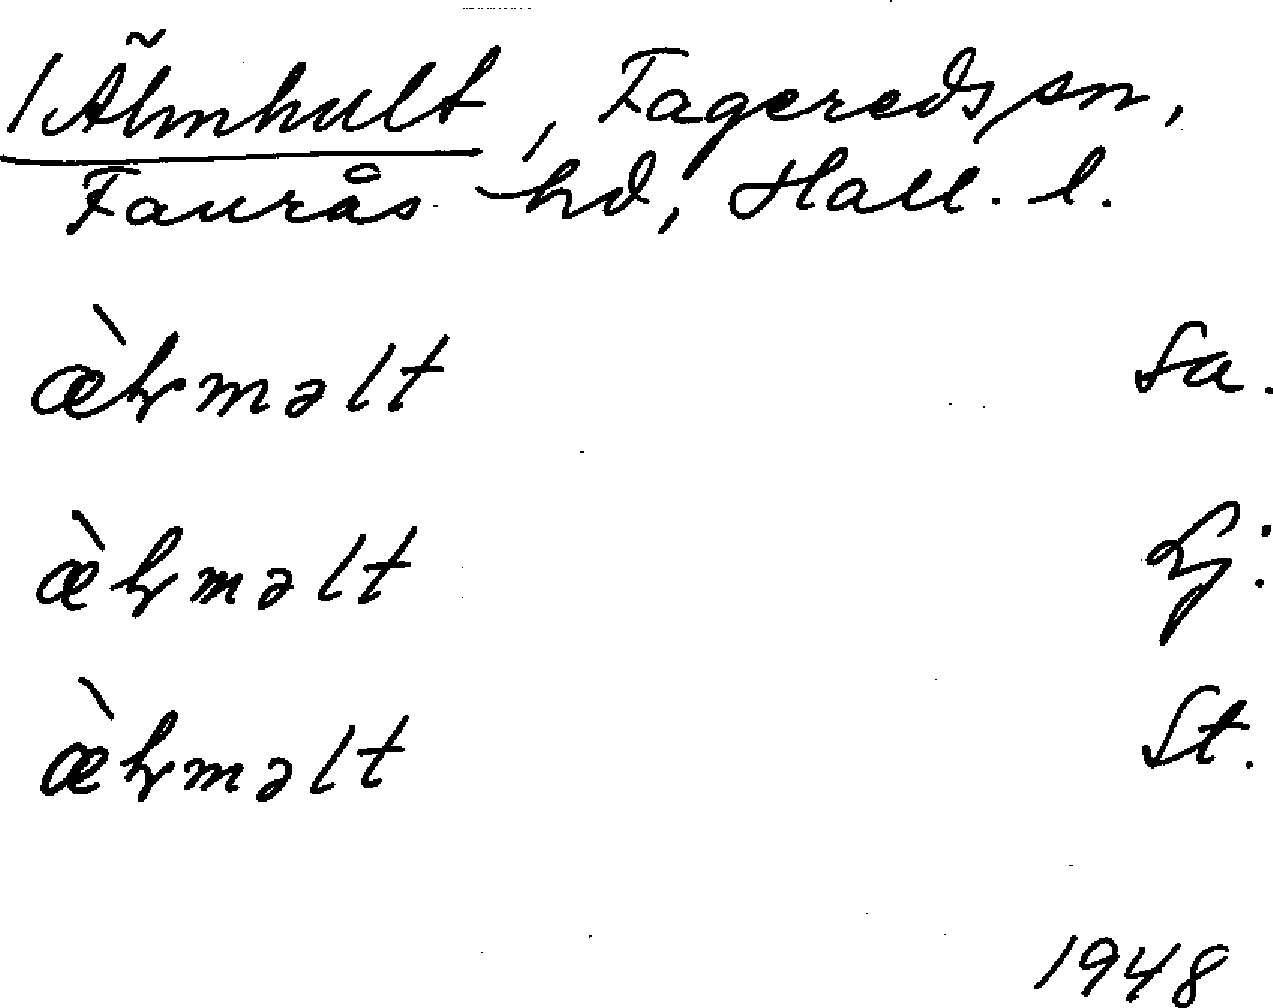 /Älmhult, Fagereds sn,
Faurås hd, Hall. l.
æ̀ɫməlt Sa.
æ̀ɫməlt Lj.
æ̀ɫməlt St.
1948